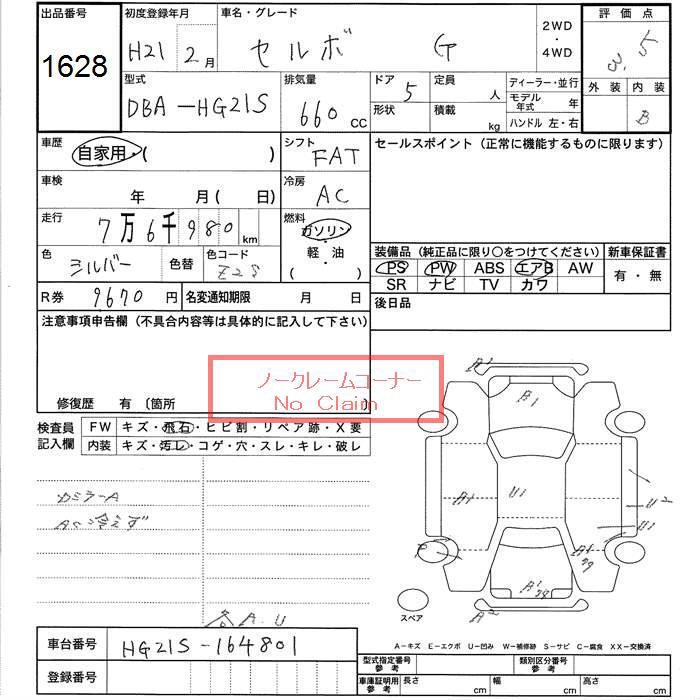 出品番号
1628
初度登録年月
H21 2月
車名・グレード
セルボ G
2WD
・
4WD
評価点
3.5
外装 内装
B
型式
DBA-HG21S
排気量
660 CC
ドア 5
形状
定員 人
積載 kg
ディーラー・並行
モデル年式 年
ハンドル 左・右
車歴 自家用・( )
シフト FAT
セールスポイント (正常に機能するものに限ります)
車検 年 月 ( 日)
冷房 AC
走行 7万6千980 km
燃料 ガソリン・
軽・油
( )
色 シルバー
色替
色コード Z2S
装備品 (純正品に限り○をつけてください)
新車保証書
PS PW ABS エアB AW
SR ナビ TV カワ
有・無
R券 9670 円
名変通知期限 月 日
後日品
注意事項申告欄 (不具合内容等は具体的に記入して下さい)
ノークレームコーナー
No Claim
修復歴 有 〔箇所
検査員
記入欄
FW キズ・飛石・ヒビ割・リペア跡・X要
内装 キズ・汚レ・コゲ・穴・スレ・キレ・破レ
カミラーA
AC冷えず
各A.U
A1
B1
A1
U1
U2
U1
P
A1
A2
スペア
A-キズ E-エクボ U-凹み W-補修跡 S-サビ C-腐食 XX-交換済
車台番号 HG21S-164801
登録番号
型式指定番号 参考
類別区分番号 参考
車庫証明用 参考
長さ cm
幅 cm
高さ cm